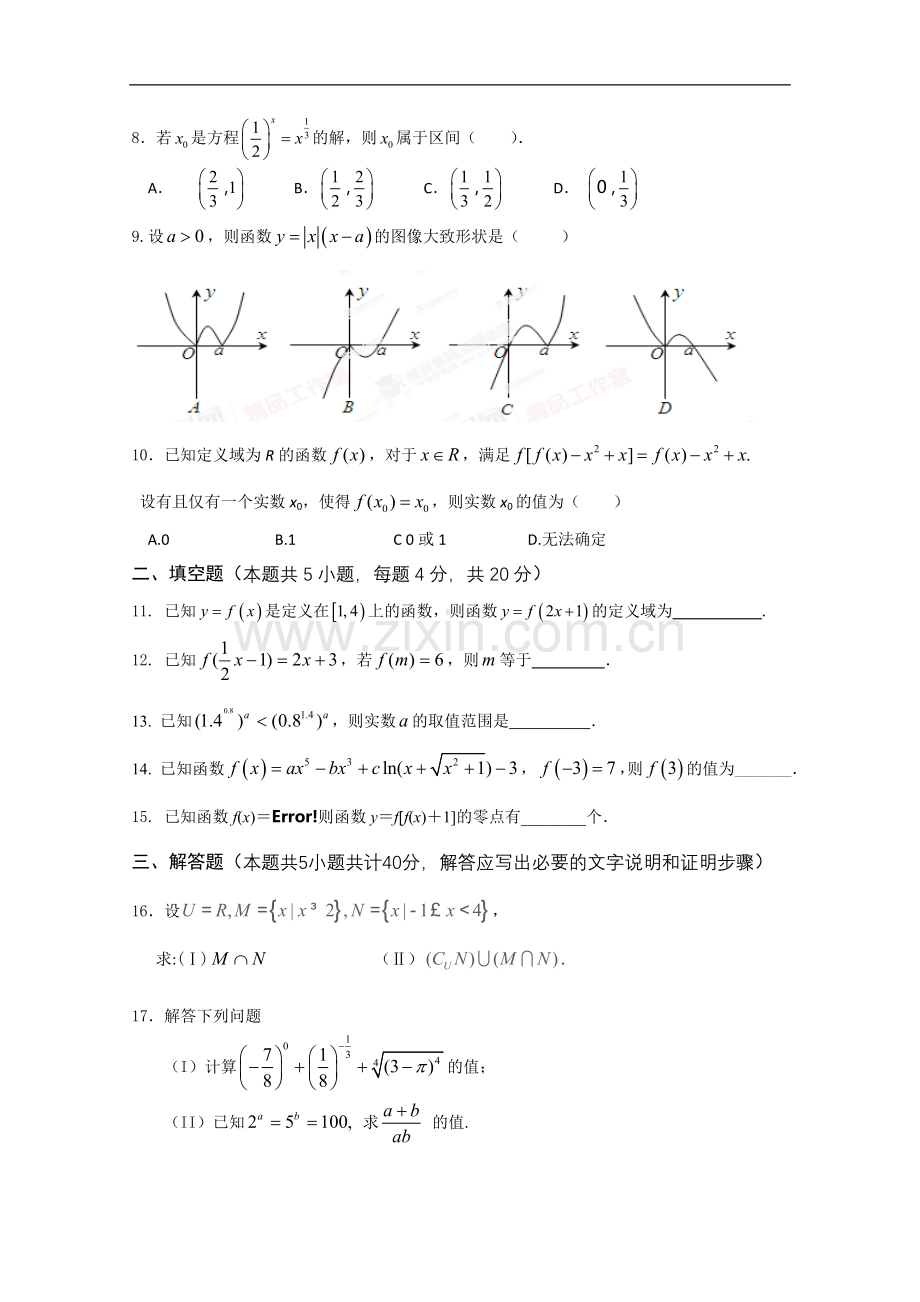 8．若 x₀ 是方程 (1/2)ˣ = x^(1/3) 的解，则 x₀ 属于区间（　　）．
A． (2/3 ,1)　B．(1/2 , 2/3)　C．(1/3 , 1/2)　D． (0 , 1/3)
9.设 a > 0 ，则函数 y = |x|(x − a) 的图像大致形状是（　　）
y y y y
x x x x
O a O a O a O a
A B C D
精品工作室
精品工作室
10．已知定义域为 R 的函数 f(x) ，对于 x ∈ R ，满足 f[f(x) − x² + x] = f(x) − x² + x.
设有且仅有一个实数 x₀，使得 f(x₀) = x₀ ，则实数 x₀ 的值为（　　）
A.0　B.1　C 0 或 1　D.无法确定
二、填空题（本题共 5 小题，每题 4 分，共 20 分）
11. 已知 y = f(x) 是定义在 [1,4) 上的函数，则函数 y = f(2x+1) 的定义域为__________．
www.zixin.com.cn
12. 已知 f(1/2 x − 1) = 2x + 3 ，若 f(m) = 6 ，则 m 等于________．
13. 已知 (1.4^0.8)^a < (0.8^1.4)^a ，则实数 a 的取值范围是_________．
14. 已知函数 f(x) = ax⁵ − bx³ + c ln(x + √(x² + 1)) − 3 ， f(−3) = 7 ，则 f(3) 的值为_______．
15. 已知函数 f(x)＝Error!则函数 y＝f[f(x)＋1]的零点有________个．
三、解答题（本题共5小题共计40分，解答应写出必要的文字说明和证明步骤）
16．设 U = R, M = {x | x ³ 2}, N = {x | - 1 £ x < 4} ，
求:(Ⅰ) M ∩ N　(Ⅱ) (C_U N) ∪ (M ∩ N)．
17．解答下列问题
（I）计算 (−7/8)⁰ + (1/8)^(−1/3) + ⁴√((3 − π)⁴) 的值;
（II）已知 2ᵃ = 5ᵇ = 100, 求 (a + b)/(ab) 的值.